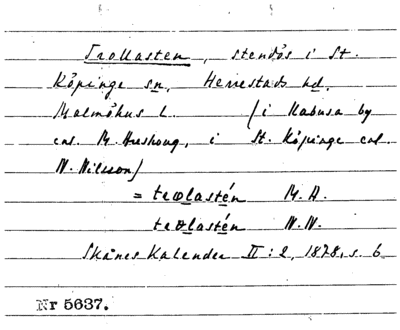 Trollasten, stendös i St.
Köpinge sn, Herrestads hd,
Malmöhus l. (i Kabusa by
enl. M. Areskoug, i St. Köpinge enl.
N. Nilsson)
= trolastén M. A.
trolastén N. N.
Skånes Kalender II:2, 1878, s. 6
Nr 5637.